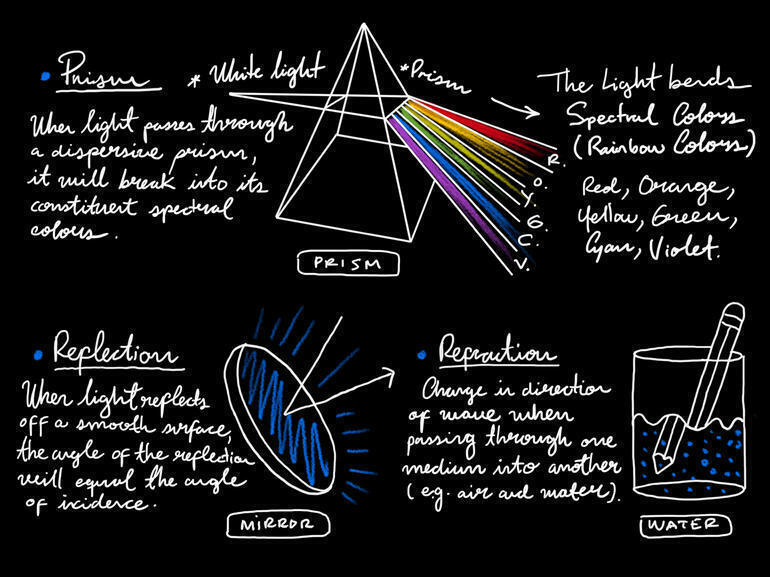 Prism
When light passes through
a dispersive prism,
it will break into its
constituent spectral
colours.
* White light
*Prism
R.
O.
Y.
G.
C.
V.
PRISM
The Light bends
Spectral Colors
(Rainbow Colors)
Red, Orange,
Yellow, Green,
Cyan, Violet.
Reflection
When light reflects
off a smooth surface,
the angle of the reflection
will equal the angle
of incidence.
MIRROR
Refraction
Change in direction
of wave when
passing through one
medium into another
(e.g. air and water).
WATER